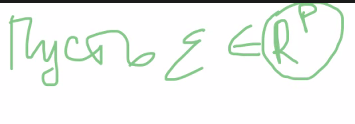 Пусть ξ ∈ R^P